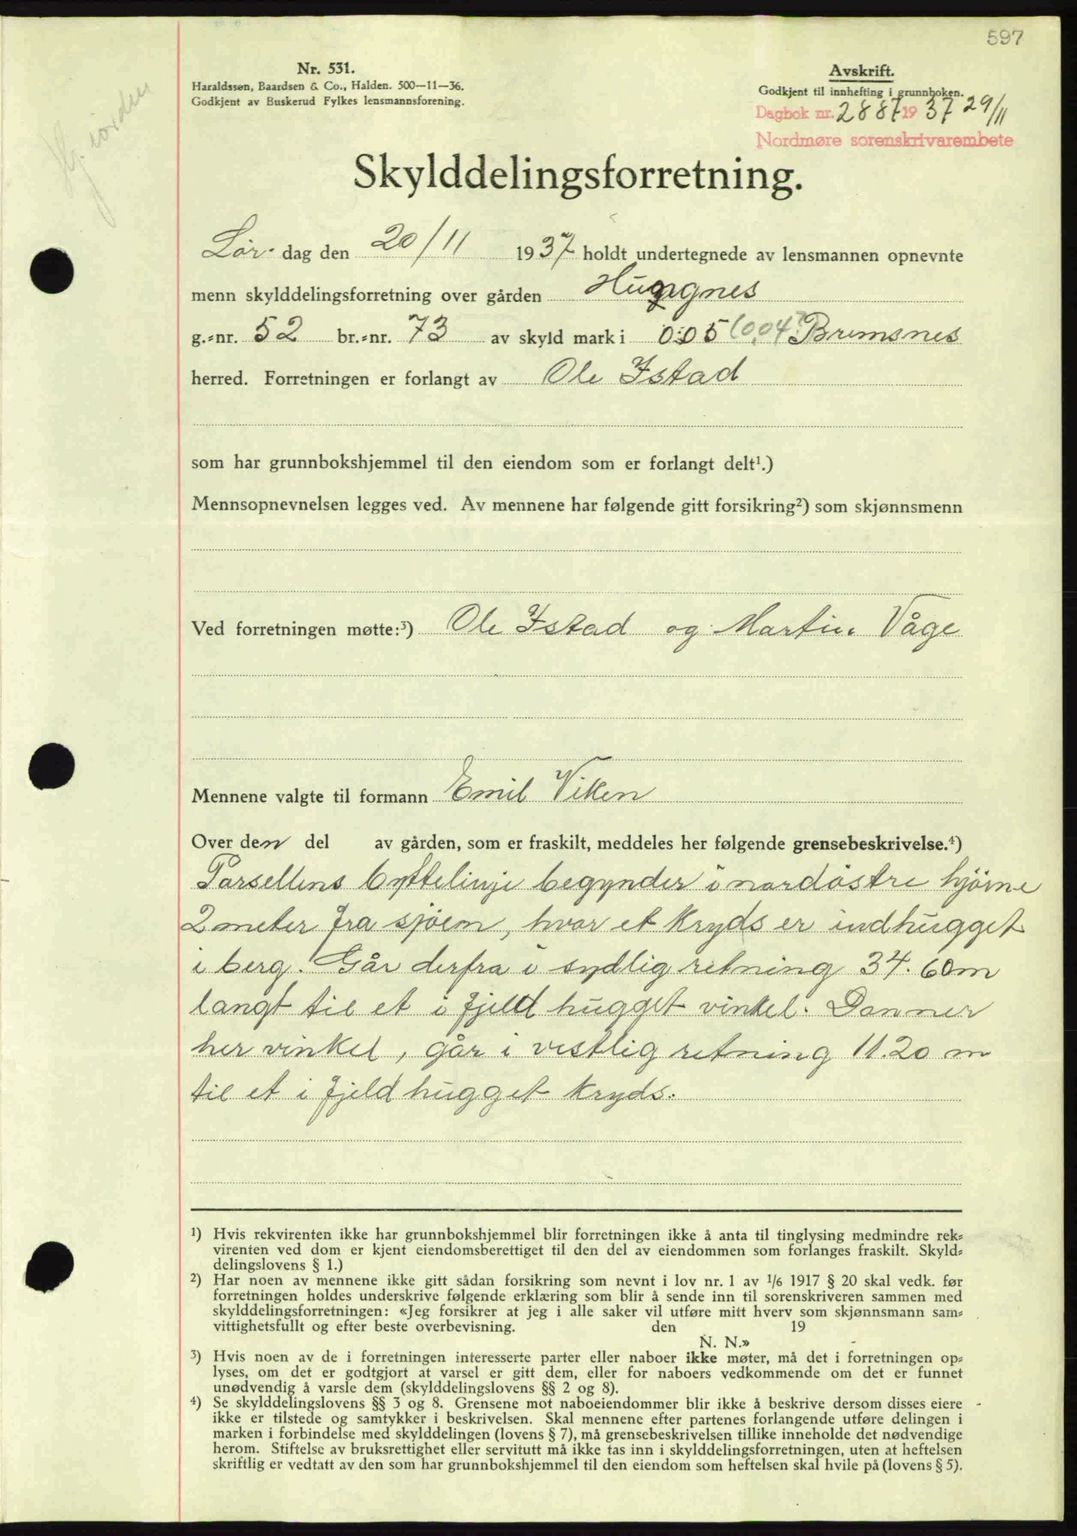 597
Nr. 531.
Haraldssøn, Baardsen & Co., Halden. 500—11—36.
Godkjent av Buskerud Fylkes lensmannsforening.
Avskrift.
Godkjent til innhefting i grunnboken.
Dagbok nr. 2887 1937 29/11
Nordmøre sorenskrivarembete
Skylddelingsforretning.
Lør- dag den 20/11 1937 holdt undertegnede av lensmannen opnevnte
menn skylddelingsforretning over gården
g.=nr. 52 br.=nr. 73 av skyld mark i 0.05 (0,04) Bremsnes
herred. Forretningen er forlangt av Ole Istad
som har grunnbokshjemmel til den eiendom som er forlangt delt¹.)
Mennsopnevnelsen legges ved. Av mennene har følgende gitt forsikring²) som skjønnsmenn
Ved forretningen møtte:³) Ole Istad og Martin Våge
Mennene valgte til formann Emil Viken
Over den del av gården, som er fraskilt, meddeles her følgende grensebeskrivelse.⁴)
Parsellens byttelinje begynder i nordöstre hjörne
2 meter fra sjöen, hvor et kryds er indhugget
i berg. Går derfra i sydlig retning 34.60 m
langt til et i fjeld hugget vinkel. Danner
her vinkel, går i vestlig retning 11.20 m
til et i fjeld hugget kryds.
¹) Hvis rekvirenten ikke har grunnbokshjemmel blir forretningen ikke å anta til tinglysing medmindre rek=
virenten ved dom er kjent eiendomsberettiget til den del av eiendommen som forlanges fraskilt. Skyld=
delingslovens § 1.)
²) Har noen av mennene ikke gitt sådan forsikring som nevnt i lov nr. 1 av 1/6 1917 § 20 skal vedk. før
forretningen holdes underskrive følgende erklæring som blir å sende inn til sorenskriveren sammen med
skylddelingsforretningen: «Jeg forsikrer at jeg i alle saker vil utføre mitt hverv som skjønnsmann sam=
vittighetsfullt og efter beste overbevisning. den 19
N. N.»
³) Hvis noen av de i forretningen interesserte parter eller naboer ikke møter, må det i forretningen op=
lyses, om det er godtgjort at varsel er gitt dem, eller for naboers vedkommende om det er funnet
unødvendig å varsle dem (skylddelingslovens §§ 2 og 8).
⁴) Se skylddelingslovens §§ 3 og 8. Grensene mot naboeiendommer blir ikke å beskrive dersom disses eiere
ikke er tilstede og samtykker i beskrivelsen. Skal mennene efter partenes forlangende utføre delingen i
marken i forbindelse med skylddelingen (lovens § 7), må grensebeskrivelsen tillike inneholde det nødvendige
herom. Stiftelse av bruksrettighet eller servitutt må ikke tas inn i skylddelingsforretningen, uten at heftelsen
skriftlig er vedtatt av den som har grunnbokshjemmel til den eiendom som heftelsen skal hvile på (lovens § 5).